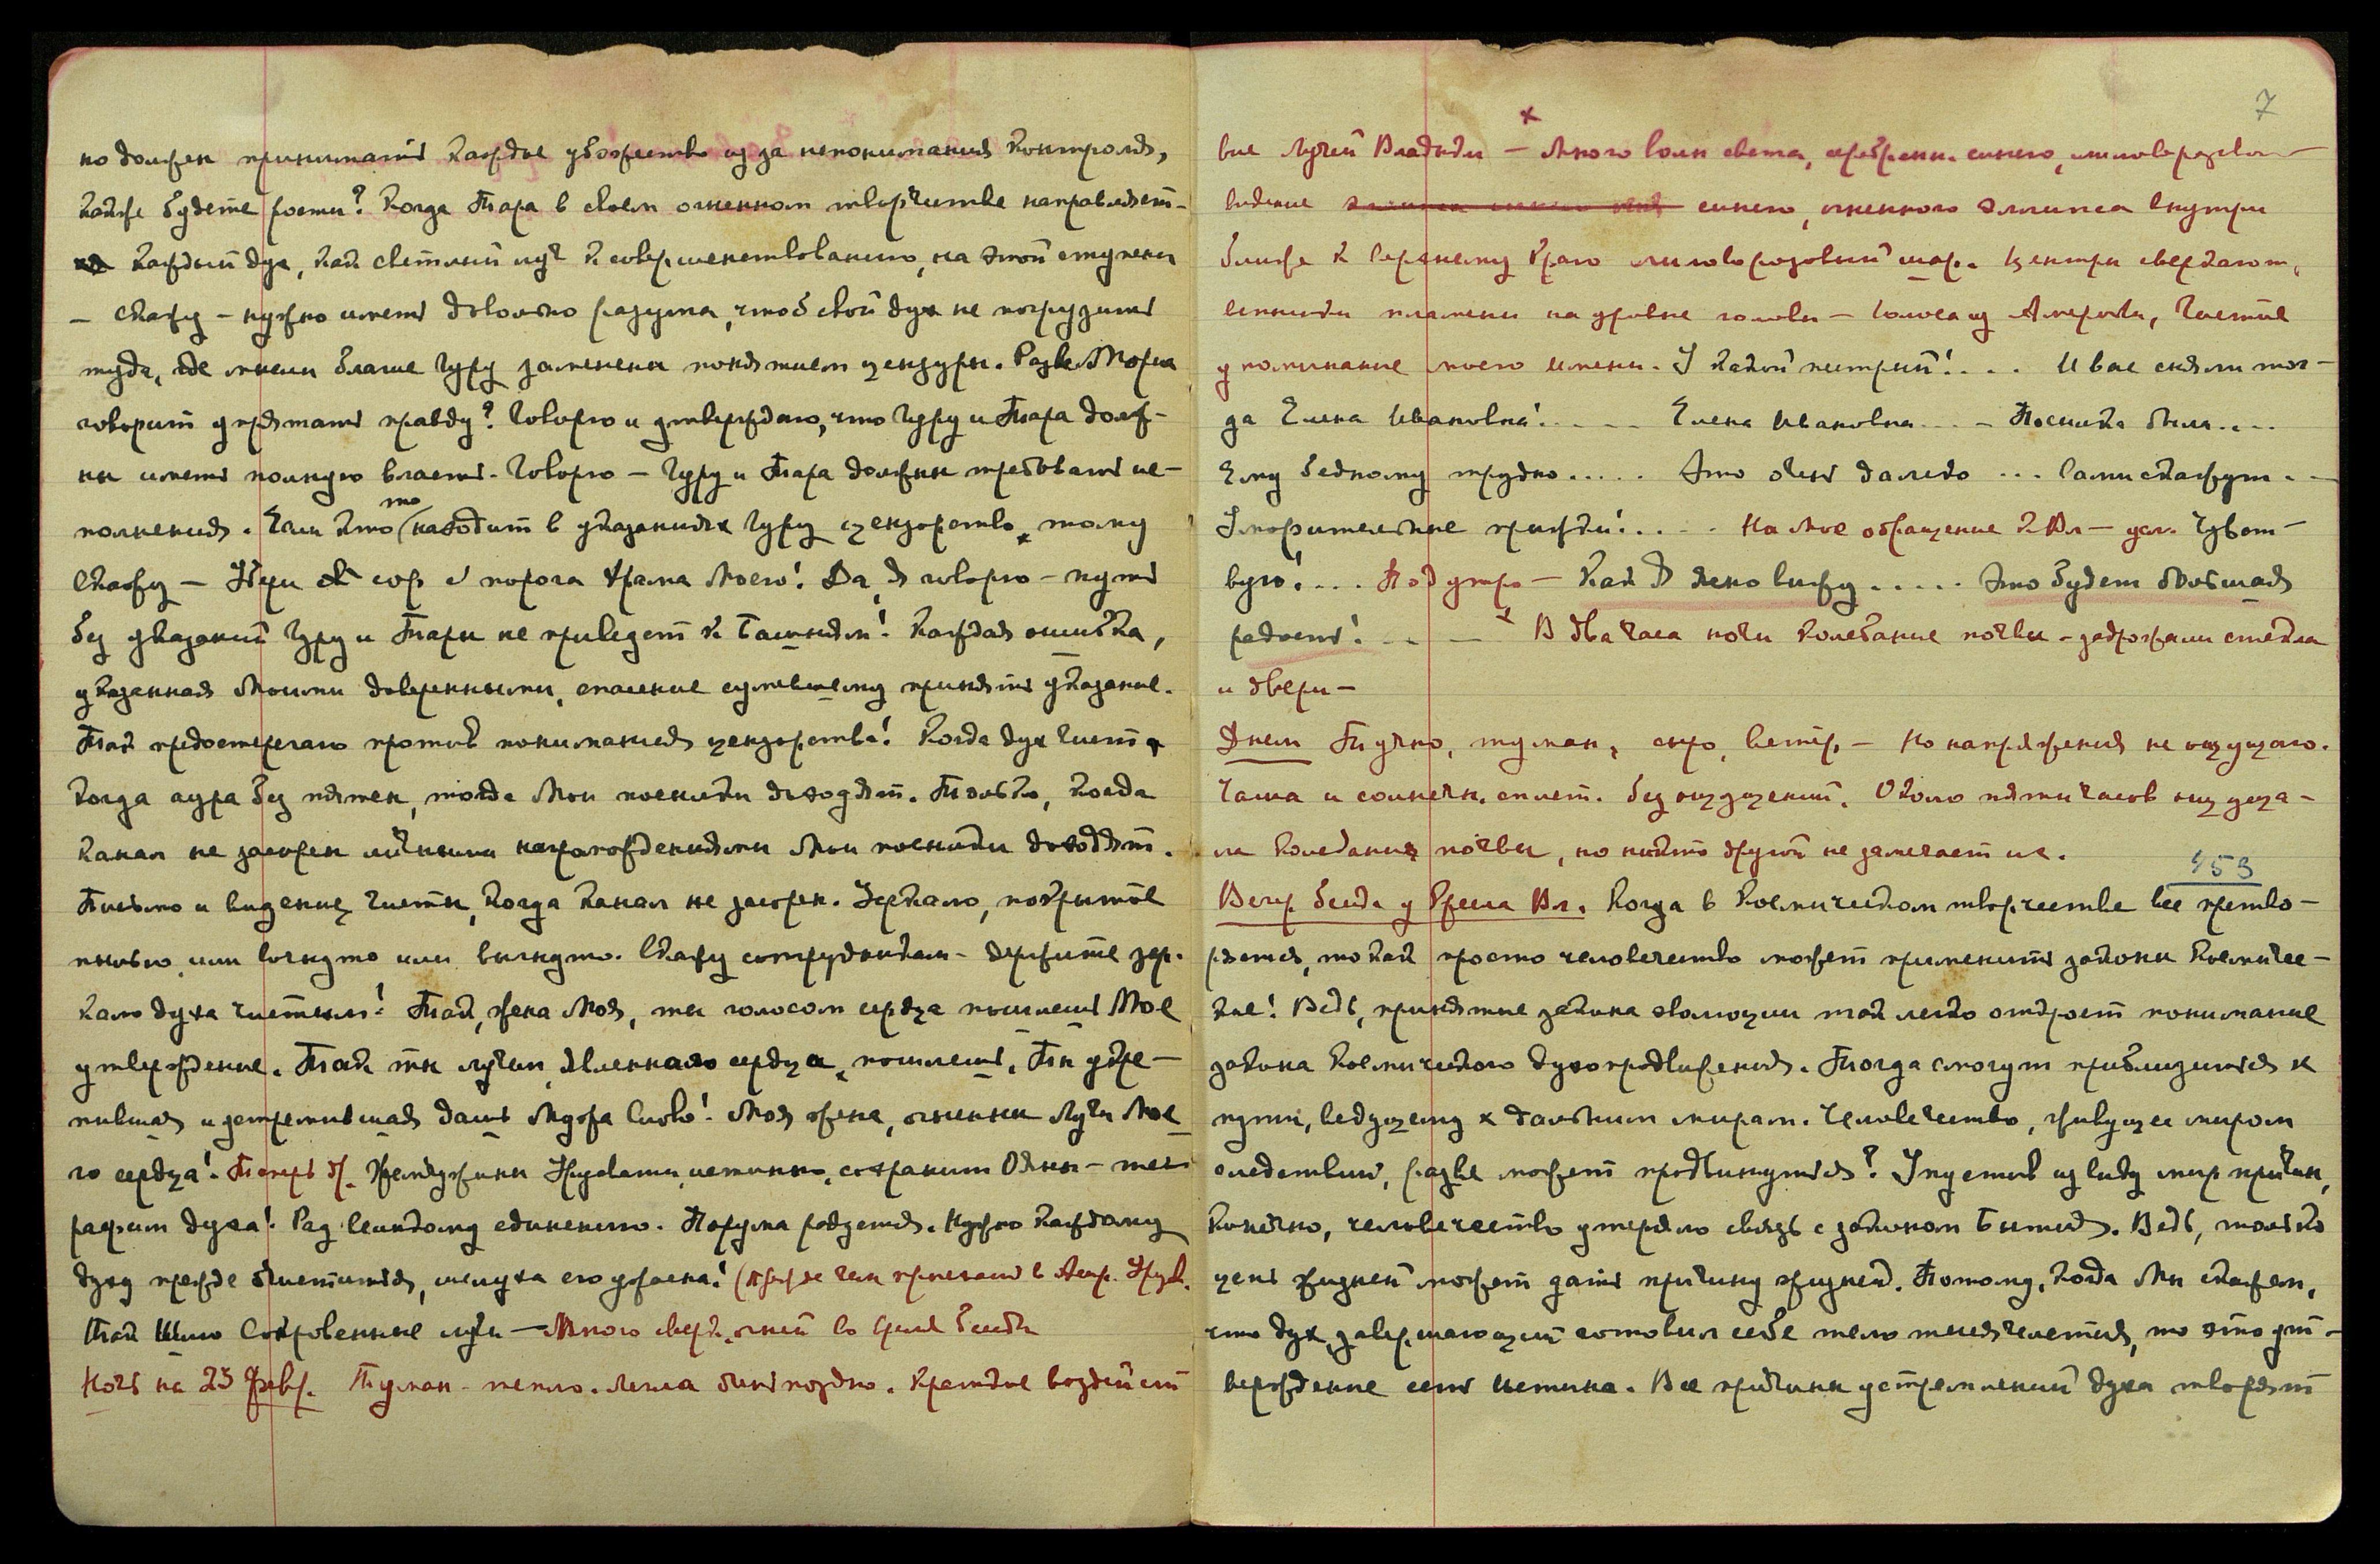 но должен принимать каждое убожество из за непонимания контроля,
какже будете расти? Когда Тара в своем огненном творчестве направляет-
каждый дух, как светлый луч к совершенствованию, на этой ступени
— скажу — нужно иметь довольно разума, чтоб свой дух не погрузить
туда, где мысли благие Гуру заменены понятием цензуры. Разве Мория
говорит упрятать правду? Говорю и утверждаю, что Гуру и Тара долж-
ны иметь полную власть. Говорю — Гуру и Тара должны требовать ис-
полнения. Если кто то находит в указаниях Гуру цензорство, тому
скажу — Убери сор с порога Храма Моего! Да, Я говорю — путь
без указаний Гуру и Тары не приведет к Башням! Каждая ошибка,
указанная Моими доверенными, спасение сумевшему принять указание.
Так предостерегаю против понимания цензорства! Когда дух чист,
когда аура без пятен, тогда Мои посылки доходят. Только, когда
канал не засорен личными нагромождениями Мои посылки доходят.
Письмо и видение чисты, когда канал не засорен. Зеркало, покрытое
пылью, или вогнуто или выгнуто. Скажу сотрудникам — держите зер-
кало духа чистым! Так, жена Моя, ты голосом сердца посылаешь Мое
утверждение. Так ты лучем, явленного сердца, пошлешь. Ты укре-
пившая и устремившая дашь Мудра Слово! Моя жена, огненны Лучи Мое-
го сердца! Теперь др. Жемчужины Урусвати, истинно, сохранит Ояны —
духа! Рад великому единению. Порума радуется. Нужно каждому
духу прежде очиститься, шелуха его ужасна! (прежде чем приехать в Ашр. Урув.
Так Шлю Сокровенные лучи — Много сверк. огней во время беседы
Ночь на 23 Февр. Туман — тепло. Легла очень поздно. Краткое воздейст
7
вие Лучей Владыки — Много волн света, серебренн. синего, лиловорозово —
видение синего, огненного эллипса внутри
ближе к верхнему краю лиловорозовый шар. Центры сверкают,
вспышки пламени на уровне головы — Голоса из Америки, частые
упоминание моего имени. У какой хитрый!.... И вас сняли тог-
да Елена Ивановна!..... Елена Ивановна.... Посылка была....
Ему бедному трудно..... Это очень далеко ... Сами скажут..
Уморительные правды!.... На мое обращение к Вл — усл. Чувст-
вую!.... Под утро — Как Я ясно вижу ..... Это будет большая
радость!.... В два часа ночи колебание почвы — задрожали стекла
и двери —
Днем Тучно, туман, сыро, ветер, — Но напряжения не ощущаю.
Чаша и солнечн. сплет. без ощущений. Около пяти часов ощуща-
ла колебание почвы, но никто другой не замечает их.
453
Вечер беседа у Кресла Вл. Когда в космическом творчестве все претво-
ряется, то как просто человечество может применить законы космичес-
кие! Ведь, принятие закона эволюции так легко откроет понимание
закона космического духопродвижения. Тогда смогут приблизиться к
пути, ведущему к дальним мирам. Человечество, живущее миром
следствий, разве может продвинуться? Упустив из виду мир причин,
конечно, человечество утеряло связь с законом Бытия. Ведь, только
цепь жизней может дать причину жизней. Потому, когда Мы скажем,
что дух, завершающий готовил себе тело тысячелетия, то это ут-
верждение есть истина. Все причины устремлений духа творят